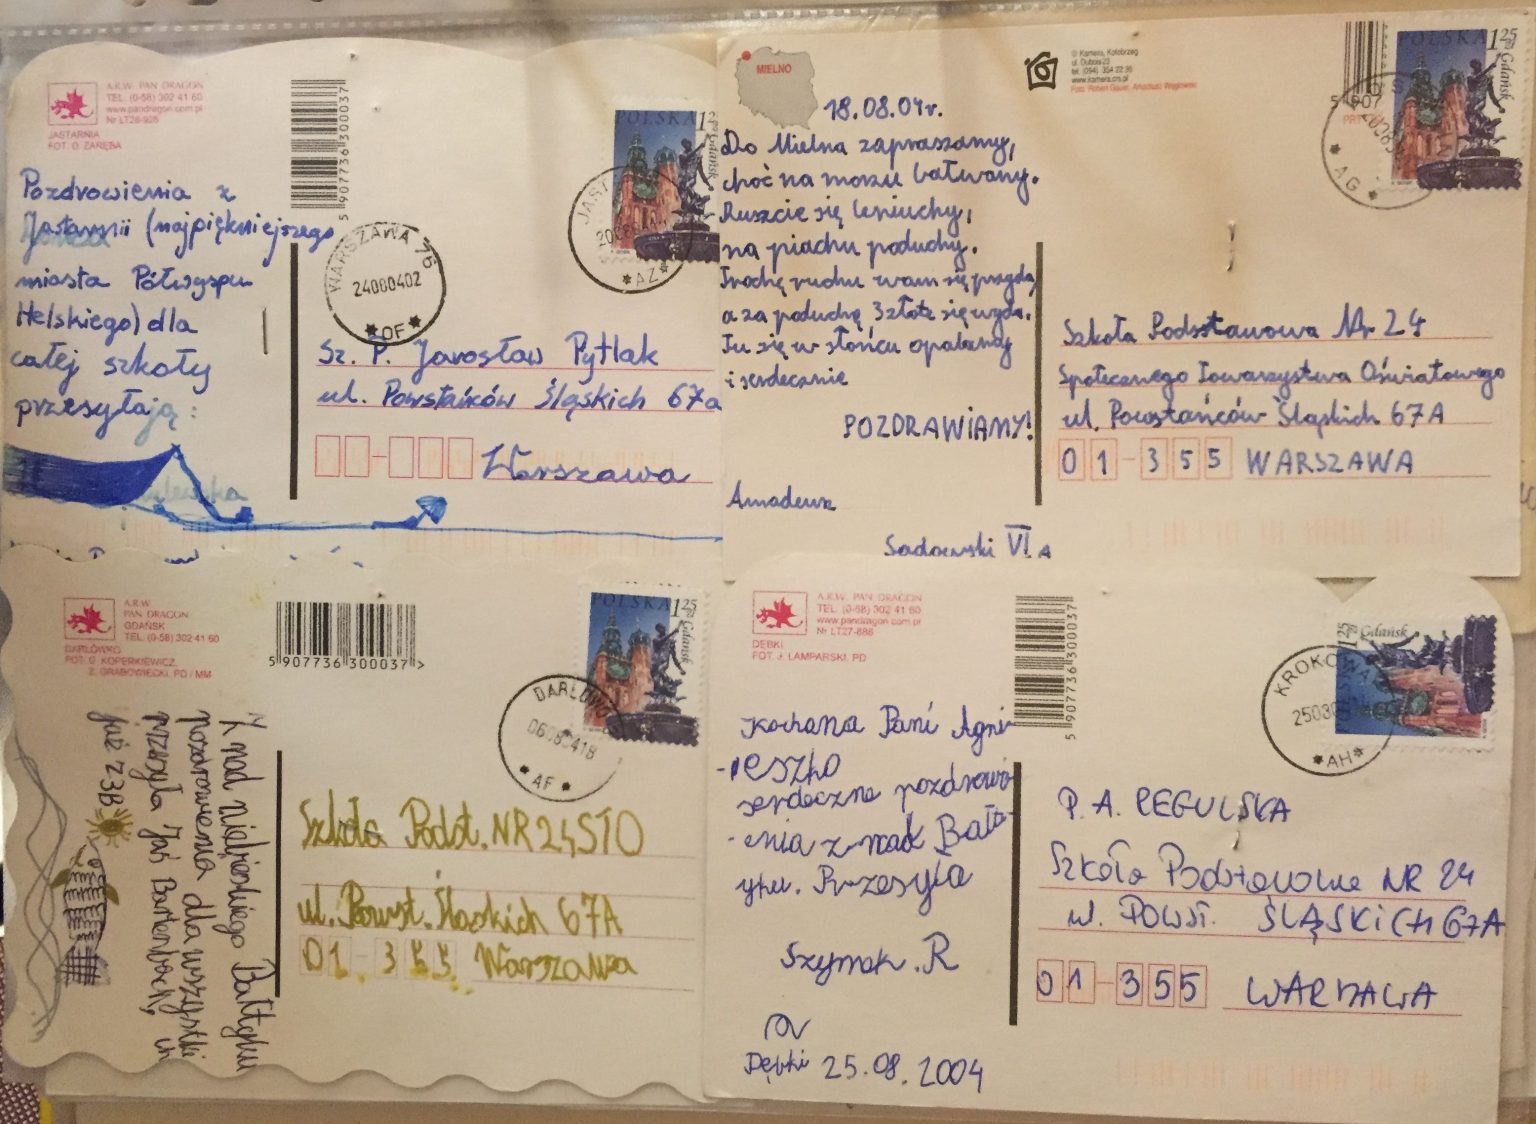 A.R.W. PAN DRAGON
TEL. (0-58) 302 41 60
www.pandragon.com.pl
Nr LT28-926
JASTARNIA
FOT. O. ZARĘBA
5 907736 300037
POLSKA 1 25
Gdańsk
Pozdrowienia z
Jastarnii (najpiękniejszego
miasta Półwyspu
Helskiego) dla
całej szkoły
przesyłają:
WARSZAWA 76
24080402
* OF *
JAST
* AZ *
Sz. P. Jarosław Pytlak
ul. Powstańków Śląskich 67a
Warszawa
MIELNO
© Kamera, Kołobrzeg
ul. Dubois 23
tel. (094) 354 22 35
www.kamera.crs.pl
POLSKA 1 25
Gdańsk
* AG *
18.08.04r.
Do Mielna zapraszamy,
choć na morzu bałwany.
Ruszcie się leniuchy,
na piachu poduchy.
Trochę ruchu wam się przyda,
a za poduchę 3 złote się wyda.
Tu się w słońcu opalamy
i serdecznie
POZDRAWIAMY!
Amadeusz
Sadowski VI A
Szkoła Podstawowa Nr 24
Społecznego Towarzystwa Oświatowego
ul. Powstańców Śląskich 67A
01-355 WARSZAWA
A.R.W.
PAN DRAGON
GDAŃSK
TEL. (0-58) 302 41 60
DARŁÓWKO
FOT. G. KOPERKIEWICZ,
Z. GRABOWIECKI, PD / MM
5 907736 300037 >
POLSKA 1 25
Gdańsk
DARŁOWO
* AF *
Z nad niebieskiego Bałtyku
pozdrowienia dla wszystki
przesyła Jaś
już z 3B
Szkoła Podst. NR 24 STO
ul. Powst. Ślaskich 67A
01-355 Warszawa
A.R.W. PAN DRAGON
TEL. (0-58) 302 41 60
www.pandragon.com.pl
Nr LT27-888
DĘBKI
FOT. J. LAMPARSKI, PD
5 907736 300037
1 25 Gdańsk
KROKOWA
* AH *
Kochana Pani Agni
-eszko
serdeczne pozdrowi
-enia z nad Bałt-
yku. Przesyła
Szymek. R
Dębki 25.08.2004
P. A. REGULSKA
Szkoła Podstawowa NR 24
ul. POWST. ŚLĄSKICH 67A
01-355 WARSZAWA